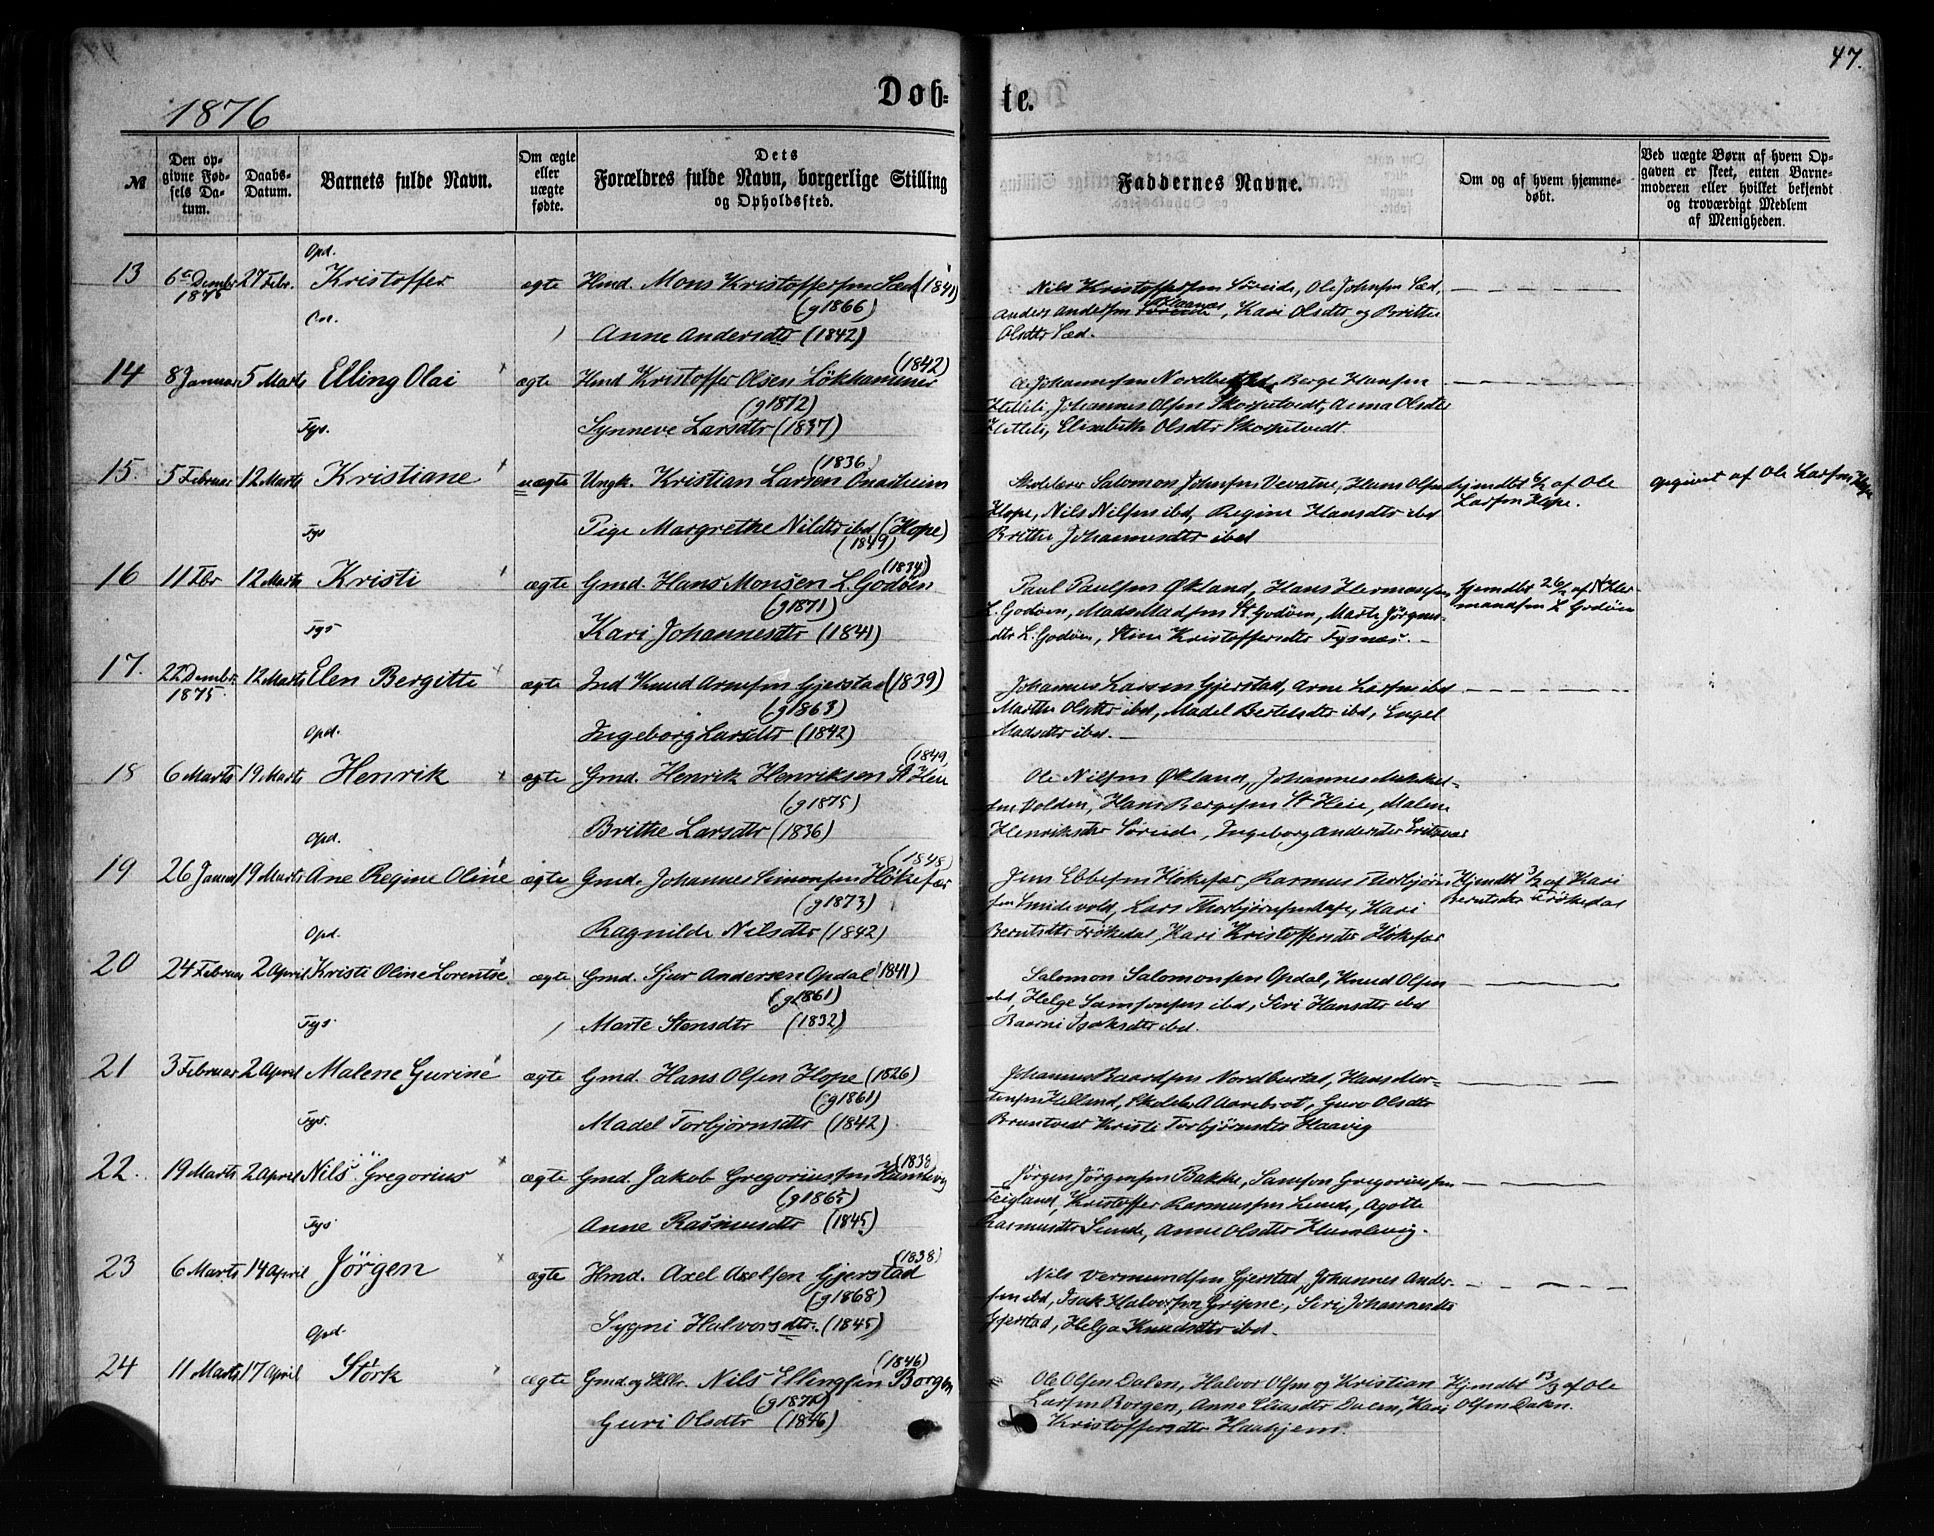 47.
1876
Døb-
te.
№
Den op-
givne Fød-
sels Da-
tum.
Daabs-
Datum.
Barnets fulde Navn.
Om ægte
eller
uægte
fødte.
Dets
Forældres fulde Navn, borgerlige Stilling
og Opholdssted.
Faddernes Navne.
Om og af hvem hjemme-
døbt.
Ved uægte Børn af hvem Op-
gaven er skeet, enten Barne-
moderen eller hvilket bekjendt
og troværdigt Medlem
af Menigheden.
Opd.
13 6te Decmbr 1875 27 Febr. Kristoffer ægte Hmd. Mons Kristoffersen Sæd (1841)
(g1866)
Anne Andersdtr (1842)
Nils Kristoffersen Søreide, Ole Johnsen Sæd,
Anders Andersen, Kari Olsdtr og Brithe
Olsdtr Sæd.
14 8 Januar 5 Marts Elling Olai ægte Hmd Kristoffer Olsen Løkhammer (1842)
(g1872)
Synneve Larsdtr (1837)
Ole Johannessen Nordbustad, Berge Hansen
Hetlet, Johannes Olsen Skorpetvedt, Anna Olsdtr
Hetlet, Elisabeth Olsdtr Skorpetvedt.
Tys.
15. 5 Februar 12 Marts Kristiane uægte Ungk. Kristian Larsen Onarheim (1836)
Pige Margrethe Nilsdtr ibd (Hope)
(1849)
Skolelærer Salomon Johnsen Vevatne, Hans Olsen
Hope, Nils Nilsen ibd, Regine Hansdtr ibd
Brithe Johannesdtr ibd
Hjemdbt 6/2 af Ole
Larsen Hope.
opgivet af Ole Larsen Hope
Tys
16 11 Fbr 12 Marts Kristi ægte Gmd. Hans Monsen L. Godøen (1834)
(g1871)
Kari Johannesdtr (1841)
Paul Paulsen Økland, Hans Hermansen
L. Godøen, Mads Madsen St Godøen, Marte Jørgens-
dtr L. Godøen, Stine Kristoffersdtr Tysnes.
Hjemdbt 26/2 af H Her-
mansen L Godøen
Tys
17. 22 Decmbr 1875. 12 Marts Elen Bergitte ægte Ind Knud Arnesen Gjerstad (1839)
(g1863)
Ingeborg Larsdtr (1842)
Johannes Larsen Gjerstad, Arne Larsen ibd
Marthe Olsdtr ibd, Madel Bertelsdtr ibd, Engel
Madsdtr ibd.
Opd.
18 6 Marts 19 Marts Henrik ægte Gmd. Henrik Henriksen St Heie (1849)
(g1875)
Brithe Larsdtr (1836)
Ole Nilsen Økland, Johannes Mikkel-
sen Molden, Hans Bergesen St Heie, Malene
Henriksdtr Søreide, Ingeborg Andersdtr
Opd.
19 26 Januar 19 Marts Ane Regine Oline ægte Gmd. Johannes Simonsen Høkefær (1848)
(g1873)
Ragnilde Nilsdtr (1842)
Jens Ebbesen Høkefær Rasmus Thorbjørn-
sen Smidevold, Lars Thorbjørnsen, Kari
Berntsdtr Frøkedal, Kari Kristoffersdtr Høkefær
Hjemdbt 3/2 af Kari
Berntsdtr Frøkedal
Opd.
20 24 Februar 2 April Kristi Oline Lorentse ægte Gmd. Sjur Andersen Opdal (1841)
(g1861)
Marte Stensdtr (1832)
Salomon Salomonsen Opdal, Knud Olsen
ibd, Helge Samsonsen ibd, Siri Hansdtr ibd
Baarni Isaksdtr ibd.
Tys.
21 3 Februar 2 April Malene Gurine ægte Gmd. Hans Olsen Hope (1826)
(g1861)
Madel Torbjørnsdtr (1842)
Johannes Baardsen Nordbustad, Hans Mor-
tensen Helland, Skolelr A Aarebrot, Guro Olsdtr
Bruntvedt Kristi Torbjørnsdtr Haavig
Tys.
22. 19 Marts 2 April Nils Gregorius ægte Gmd. Jakob Gregoriussen Humlevig (1838)
(g1865)
Anne Rasmusdtr (1845)
Jørgen Jørgensen Bakke, Samson Gregoriussen
Teigland, Kristoffer Rasmussen Sunde, Agotte
Rasmusdtr Sunde, Anne Olsdtr Humlevig.
Tys.
23 6 Marts 14 April Jørgen ægte Hmd. Axel Axelsen Gjerstad (1838)
(g1868)
Sygni Halvorsdtr. (1845)
Nils Vermundsen Gjerstad, Johannes Ander-
sen ibd, Isak Halvorsen Gripne, Siri Johannesdtr
Gjerstad, Helga Knudsdtr ibd.
Opd.
24 11 Marts 17 April Størk ægte Gmd og Skllr. Nils Ellingsen Borgen (1846)
(g1872)
Guri Olsdtr (1846)
Ole Olsen Dalen, Halvor Olsen og Kristian
Larsen Borgen, Anne Eliasdtr Dalen, Kari
Kristoffersdtr Haahjem.
Hjemdbt 13/3 af Ole
Olsen Dalen.